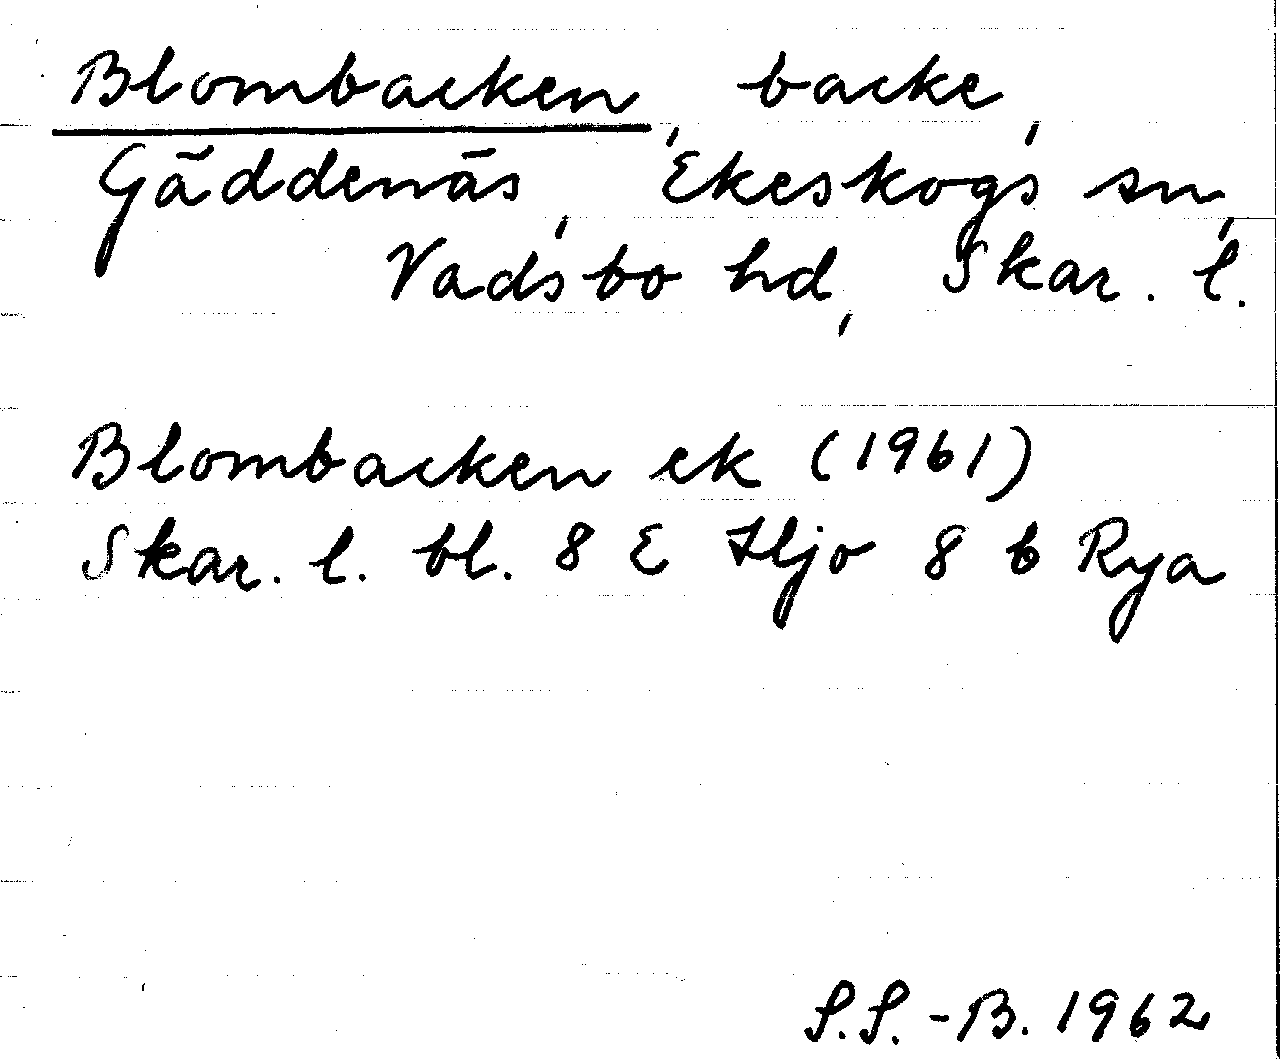 Blombacken, backe,
Gäddenäs, Ekeskogs sn,
Vadsbo hd, Skar. l.
Blombacken ek (1961)
Skar. l. bl. 8 E Hjo 8 b Rya
S.S.-B. 1962